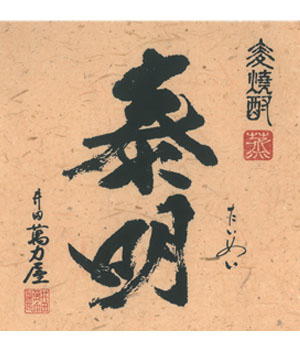 麦焼酎
蒸
泰明
たいめい
井田萬力屋